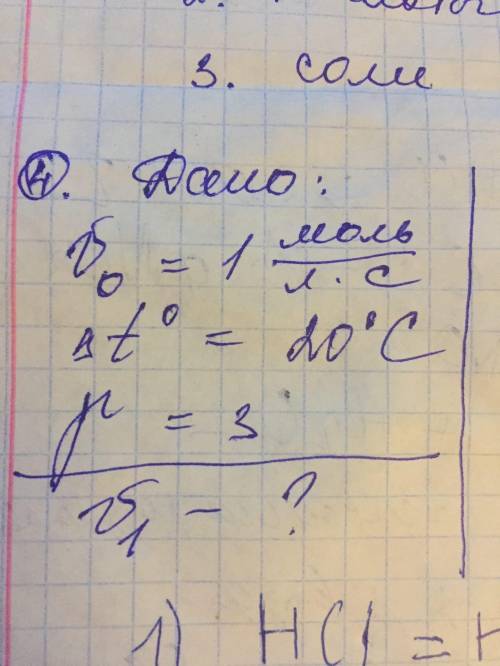 3. соли
4. Дано:
υ₀ = 1 моль/л·с
Δt° = 20°C
γ = 3
υ₁ - ?
1) HCl =